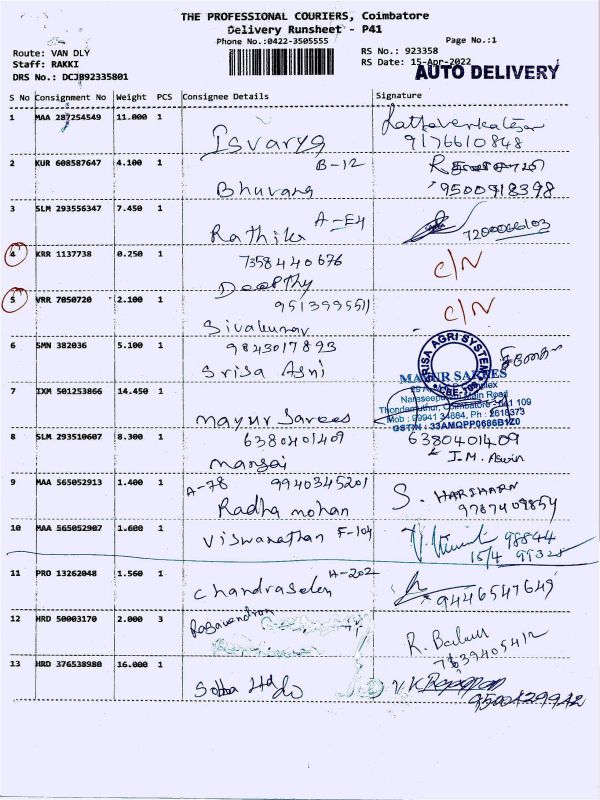 THE PROFESSIONAL COURIERS, Coimbatore
Delivery Runsheet - P41
Phone No.:0422-3505555
Page No.:1
Route: VAN DLY
RS No.: 923358
Staff: RAKKI
RS Date: 15-Apr-2022
DRS No.: DCJB92335801
AUTO DELIVERY
S No Consignment No Weight PCS Consignee Details Signature
1 MAA 287254549 11.000 1
Isvarya
9176610848
2 KUR 608587647 4.100 1
B-12
Bhuvana
9500918398
3 SLM 293556347 7.450 1
A-E4
Rathika
7200066103
4 KRR 1137738 0.250 1
7358440676 C/N
Deepthy
5 VRR 7050720 2.100 1
9513995511 C/N
Sivakumar
6 SMN 382036 5.100 1
9843017893
Srisa Agri
SRISA AGRI SYSTEM
CBE-109
7 IXM 501253866 14.450 1
MAYUR SAREES
Complex
Naraseepuram Main Road
Thondamuthur, Coimbatore - 641 109
Mob : 99941 34884, Ph : 2618373
GSTIN : 33AMQPP0686B1Z0
Mayur Sarees
8 SLM 293510607 8.300 1
6380401409 6380401409
Mansai
I.M. Aswin
9 MAA 565052913 1.400 1
A-78 9940345201
Radha mohan
S. HARIHARN
9787409854
10 MAA 565052907 1.600 1
Viswanathan F-104
98844
15/4 99328
11 PRO 13262048 1.560 1
A-202
Chandraseken
9446547649
12 HRD 50003170 2.000 3
Ragavendran
R.
7639405412
13 HRD 376538980 16.000 1
Sobha
V.K
9500429942